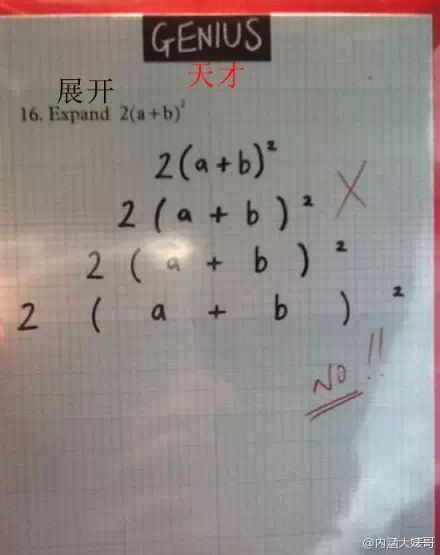 GENIUS
天才
展开
16. Expand 2(a+b)²
2(a+b)²
2(a+b)² X
2(a+b)²
2(a+b)²
NO!!
@内涵大婊哥